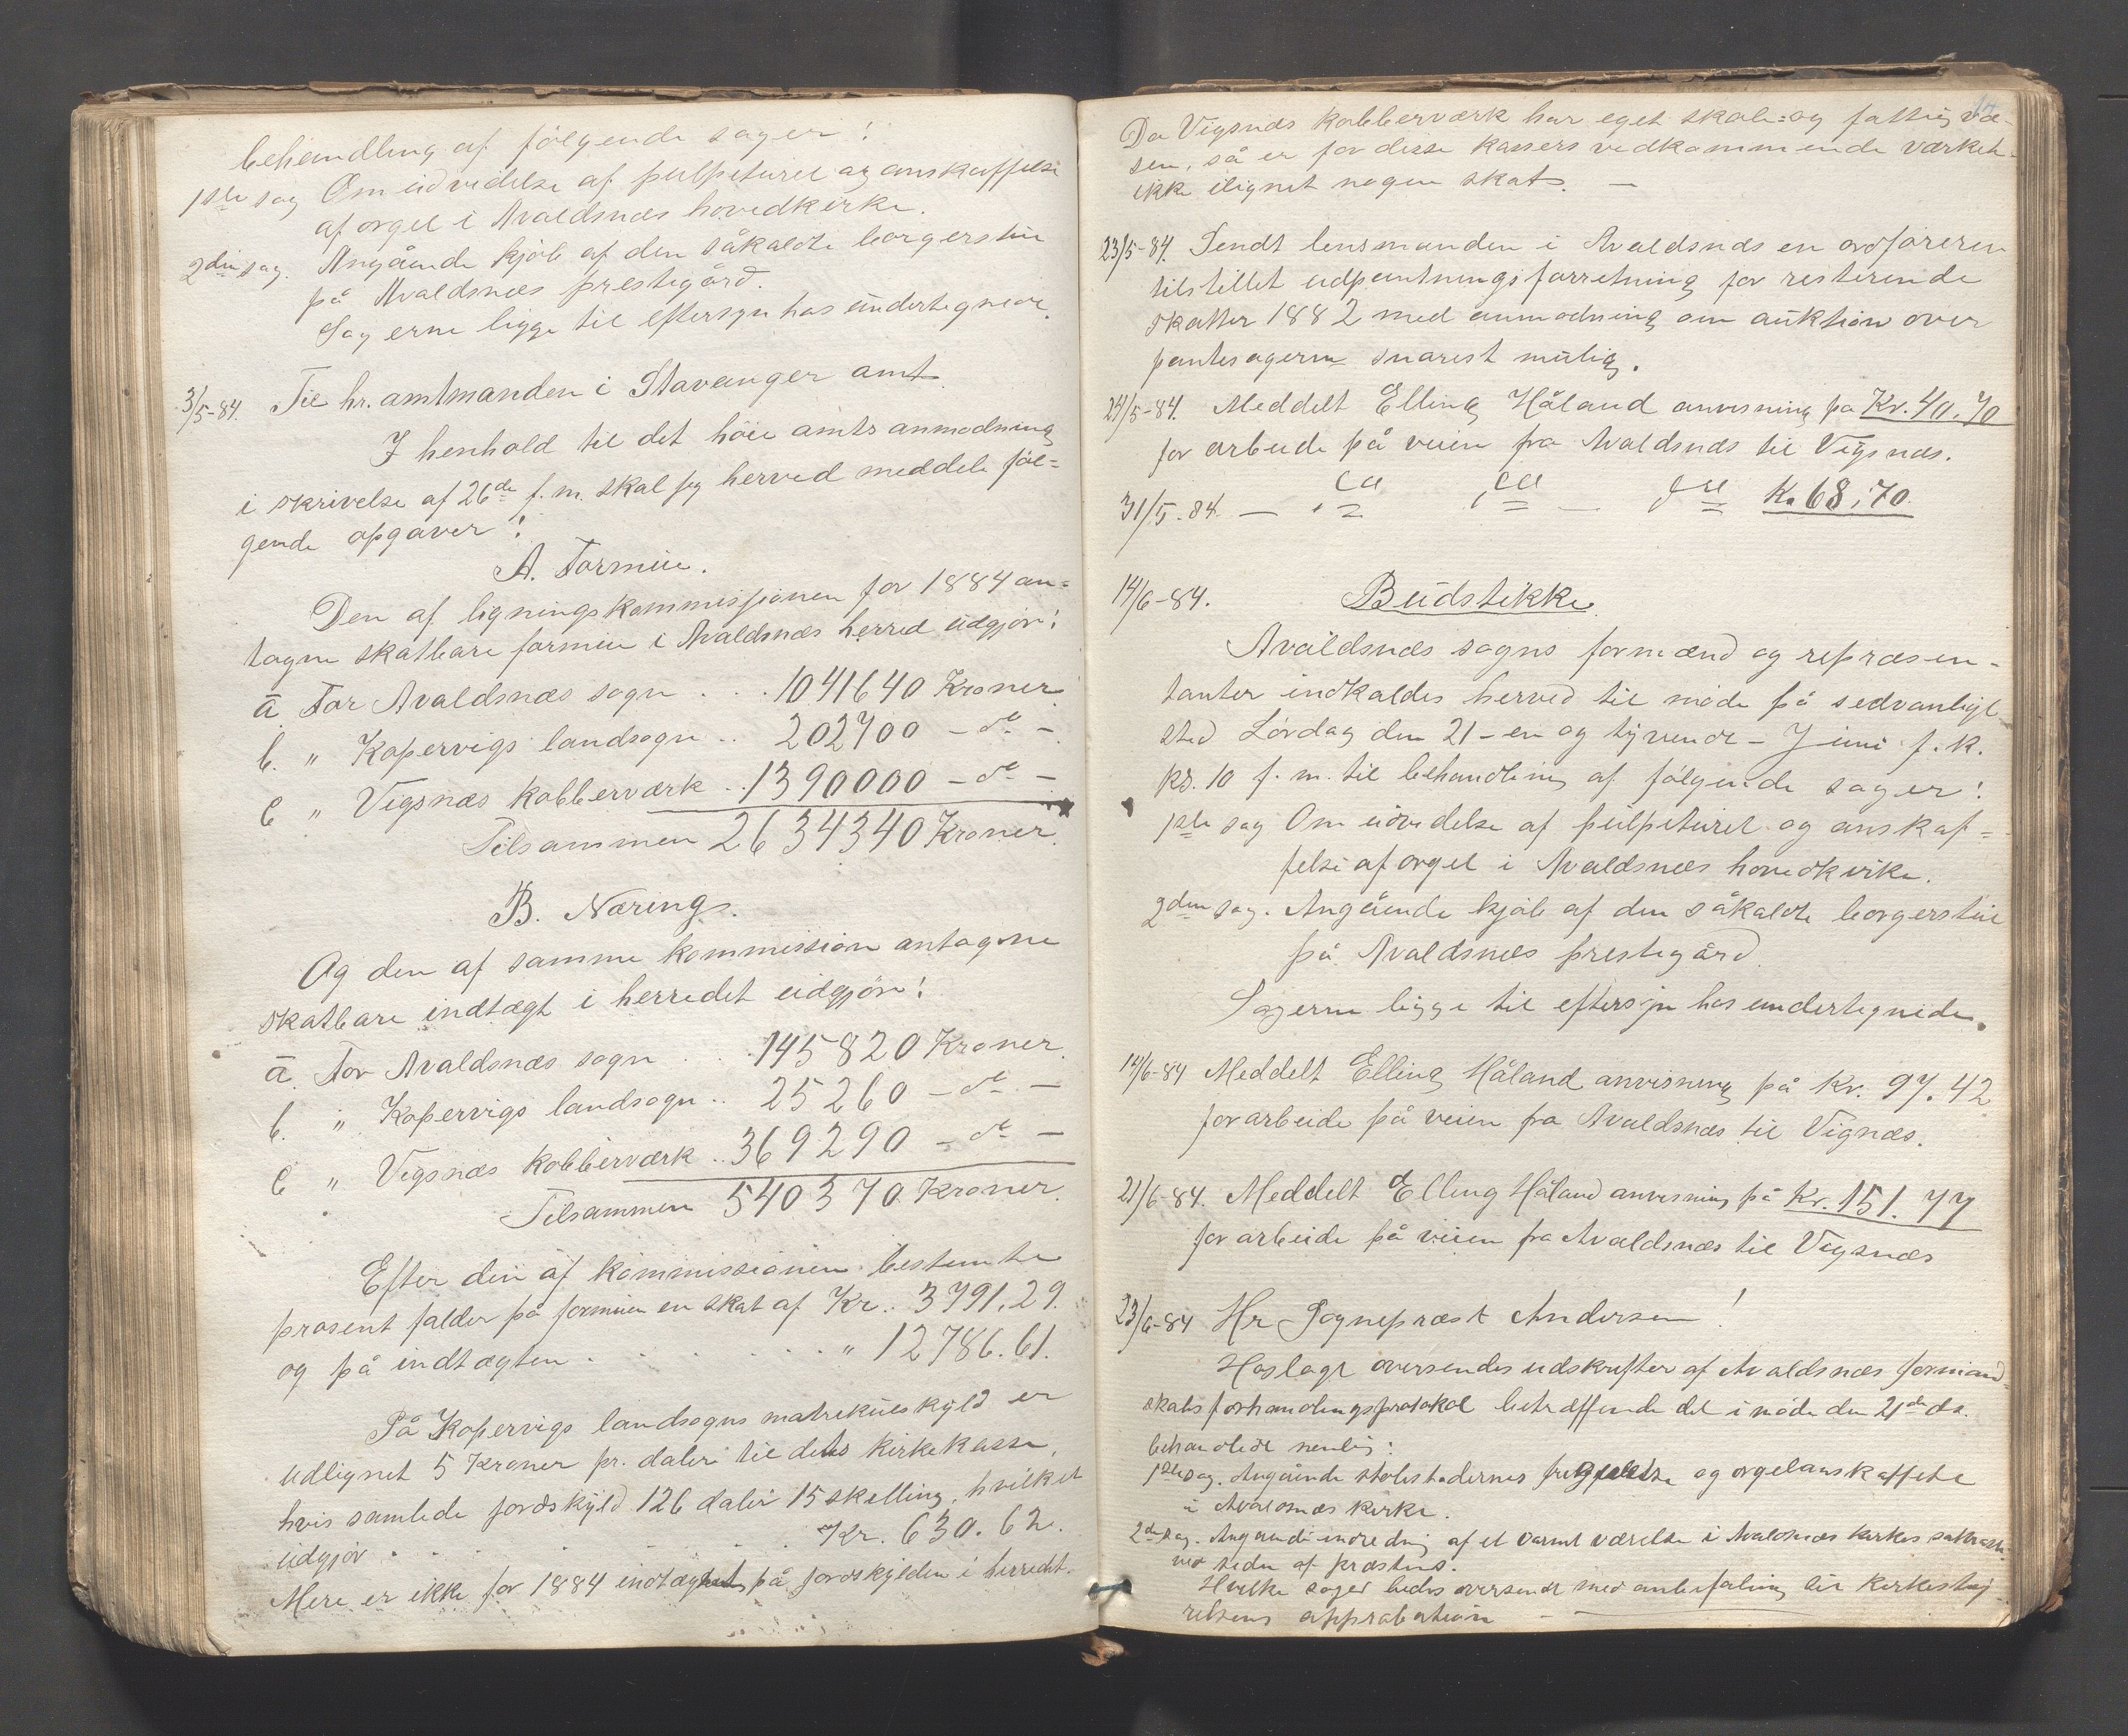 behandling af følgende sager:
1ste sag Om udvidelse af pulpeturet og anskaffelse
af orgel i Avaldsnæs hovedkirke.
2den sag. Angående kjøb af den såkaldte borgerstue
på Avaldsnæs prestegård.
Sagerne ligge til eftersyn hos undertegnede.
3/5-84. Til hr. amtmanden i Stavanger amt.
I henhold til det høie amts anmodning
i skrivelse af 26de f. m. skal jeg herved meddele føl=
gende opgaver:
A. Formue.
Den af ligningskommissionen for 1884 an=
tagne skatbare formue i Avaldsnæs herred udgjør:
a For Avaldsnæs sogn . . . 1041640 Kroner
b. " Kopervigs landsogn .. 202700 - do -
c " Vigsnæs kobberværk .. 1390000 - do -
Tilsammen 2634340 Kroner.
B. Næring.
Og den af samme kommission antagne
skatbare indtægt i herredet udgjør:
a. For Avaldsnæs sogn . . . 145820 Kroner.
b. " Kopervigs landsogn .. 25260 - do -
c " Vigsnæs kobberværk .. 369290 - do -
Tilsammen 540370 Kroner.
Efter den af kommissionen bestemte
prosent falder på formuen en skat af Kr. 3791.29.
og på indtægten . . . . . . " 12786.61.
På Kopervigs landsogns matrikulskyld er
udlignet 5 Kroner pr. daler til dets kirkekasse,
hvis samlede jordskyld 126 daler 15 skilling, hvilket
udgjør . . . . . . Kr. 630.62.
Mere er ikke for 1884 indtaget på jordskylden i herredet.
14
Da Vigsnæs kobberværk har eget skole= og fattigvæ-
sen, så er for disse kassers vedkommende værket
ikke ilignet nogen skat. -
23/5-84. Sendt lensmanden i Avaldsnæs en ordføreren
tilstillet udpantningsforretning for resterende
skatter 1882 med anmodning om auktion over
pantesagerne snarest mulig.
24/5-84. Meddelt Elling Håland anvisning på Kr. 40.70
for arbeide på veien fra Avaldsnæs til Vigsnæs.
31/5-84 - do do - do Kr. 68.70
14/6-84. Budstikke.
Avaldsnæs sogns formænd og repræsen-
tanter indkaldes herved til møde på sedvanligt
sted Lørdag den 21 - en og tyvende - Juni f. k.
kl. 10 f. m. til behandling af følgende sager:
1ste sag Om udvidelse af pulpeturet og anskaf=
felse af orgel i Avaldsnæs hovedkirke.
2den sag. Angående kjøb af den såkaldte borgerstue
på Avaldsnæs prestegård.
Sagerne ligge til eftersyn hos undertegnede.
14/6-84 Meddelt Elling Håland anvisning på Kr. 97.42
for arbeide på veien fra Avaldsnæs til Vignæs.
21/6-84. Meddelt Elling Håland anvisning på Kr. 151.77
for arbeide på veien fra Avaldsnæs til Vigsnæs
23/6-84 Hr Sogneprest Andersen!
Hoslagt oversendes udskrifter af Avaldsnæs formand=
skabsforhandlingsprotokol betræffende det i møde den 21de ds.
behandlede nemlig:
1ste sag. Angående stolestadernes frigivelse og orgelanskaffelse
i Avaldsnæs kirke.
2de sag. Angående indredning af et varmt værelse i Avaldsnæs kirkes sakristi
ved siden af præstens.
Hvilke sager bedes oversendt med anbefaling til kirkesty
relsens approbation -